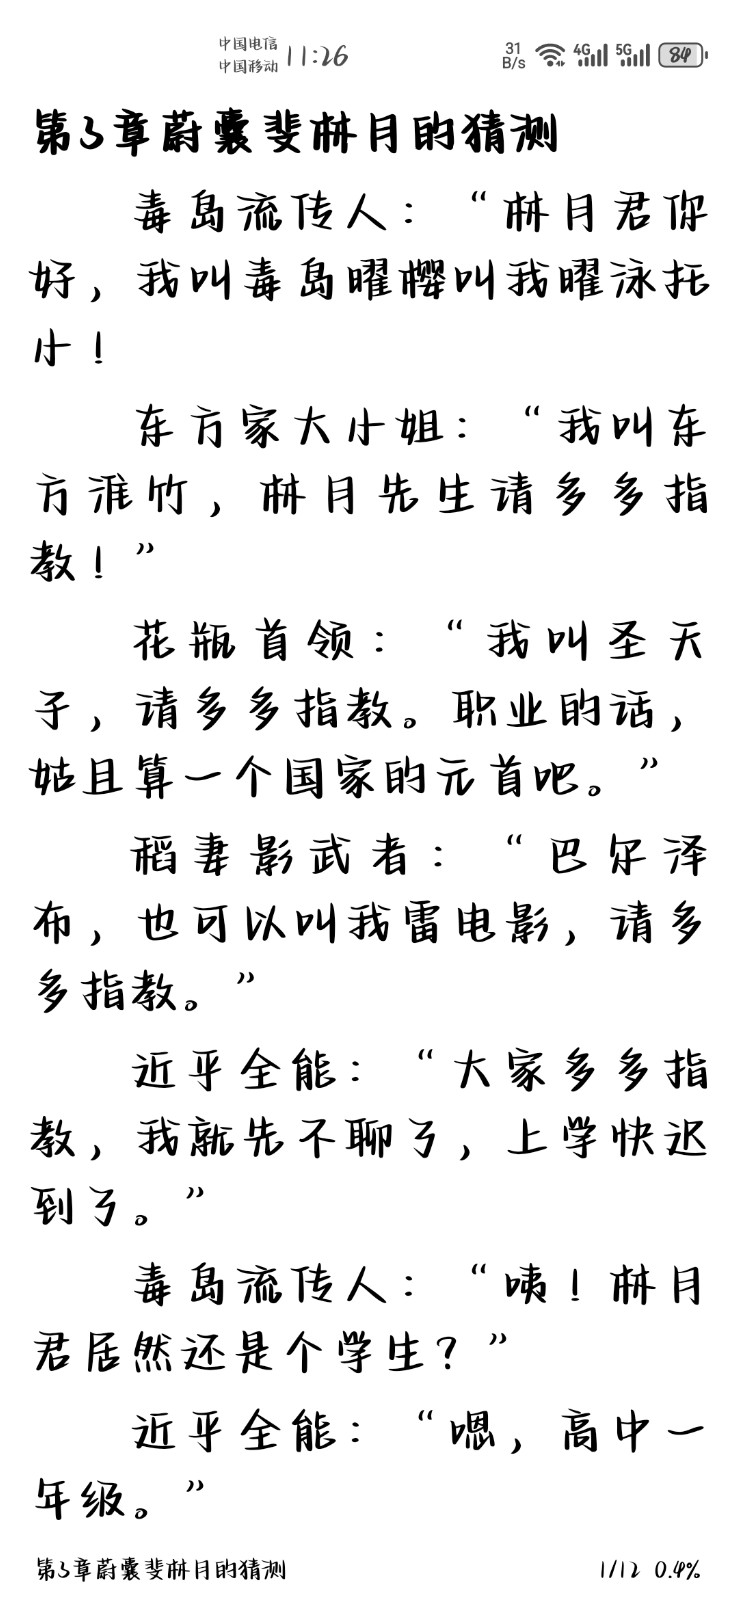 中国电信
中国移动
11:26
31 B/s 4G 5G 84
第3章蔚囊斐林月的猜测
毒岛流传人：“林月君你
好，我叫毒岛曜樱叫我曜泳托
小！
东方家大小姐：“我叫东
方淮竹，林月先生请多多指
教！”
花瓶首领：“我叫圣天
子，请多多指教。职业的话，
姑且算一个国家的元首吧。”
稻妻影武者：“巴尔泽
布，也可以叫我雷电影，请多
多指教。”
近乎全能：“大家多多指
教，我就先不聊了，上学快迟
到了。”
毒岛流传人：“咦！林月
君居然还是个学生？”
近乎全能：“嗯，高中一
年级。”
第3章蔚囊斐林月的猜测
1/12 0.4%